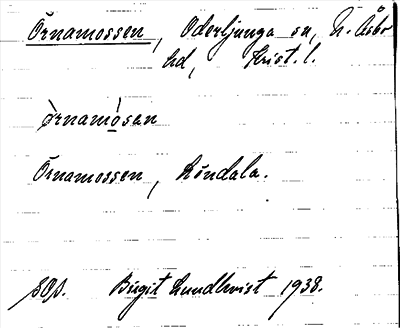 Örnamossen, Oderljunga sn, N. Åsbo
hd, Krist. l.
ö̀rnamó̠san
Örnamossen, Röndala.
sOs. Birgit Lundkvist 1938.